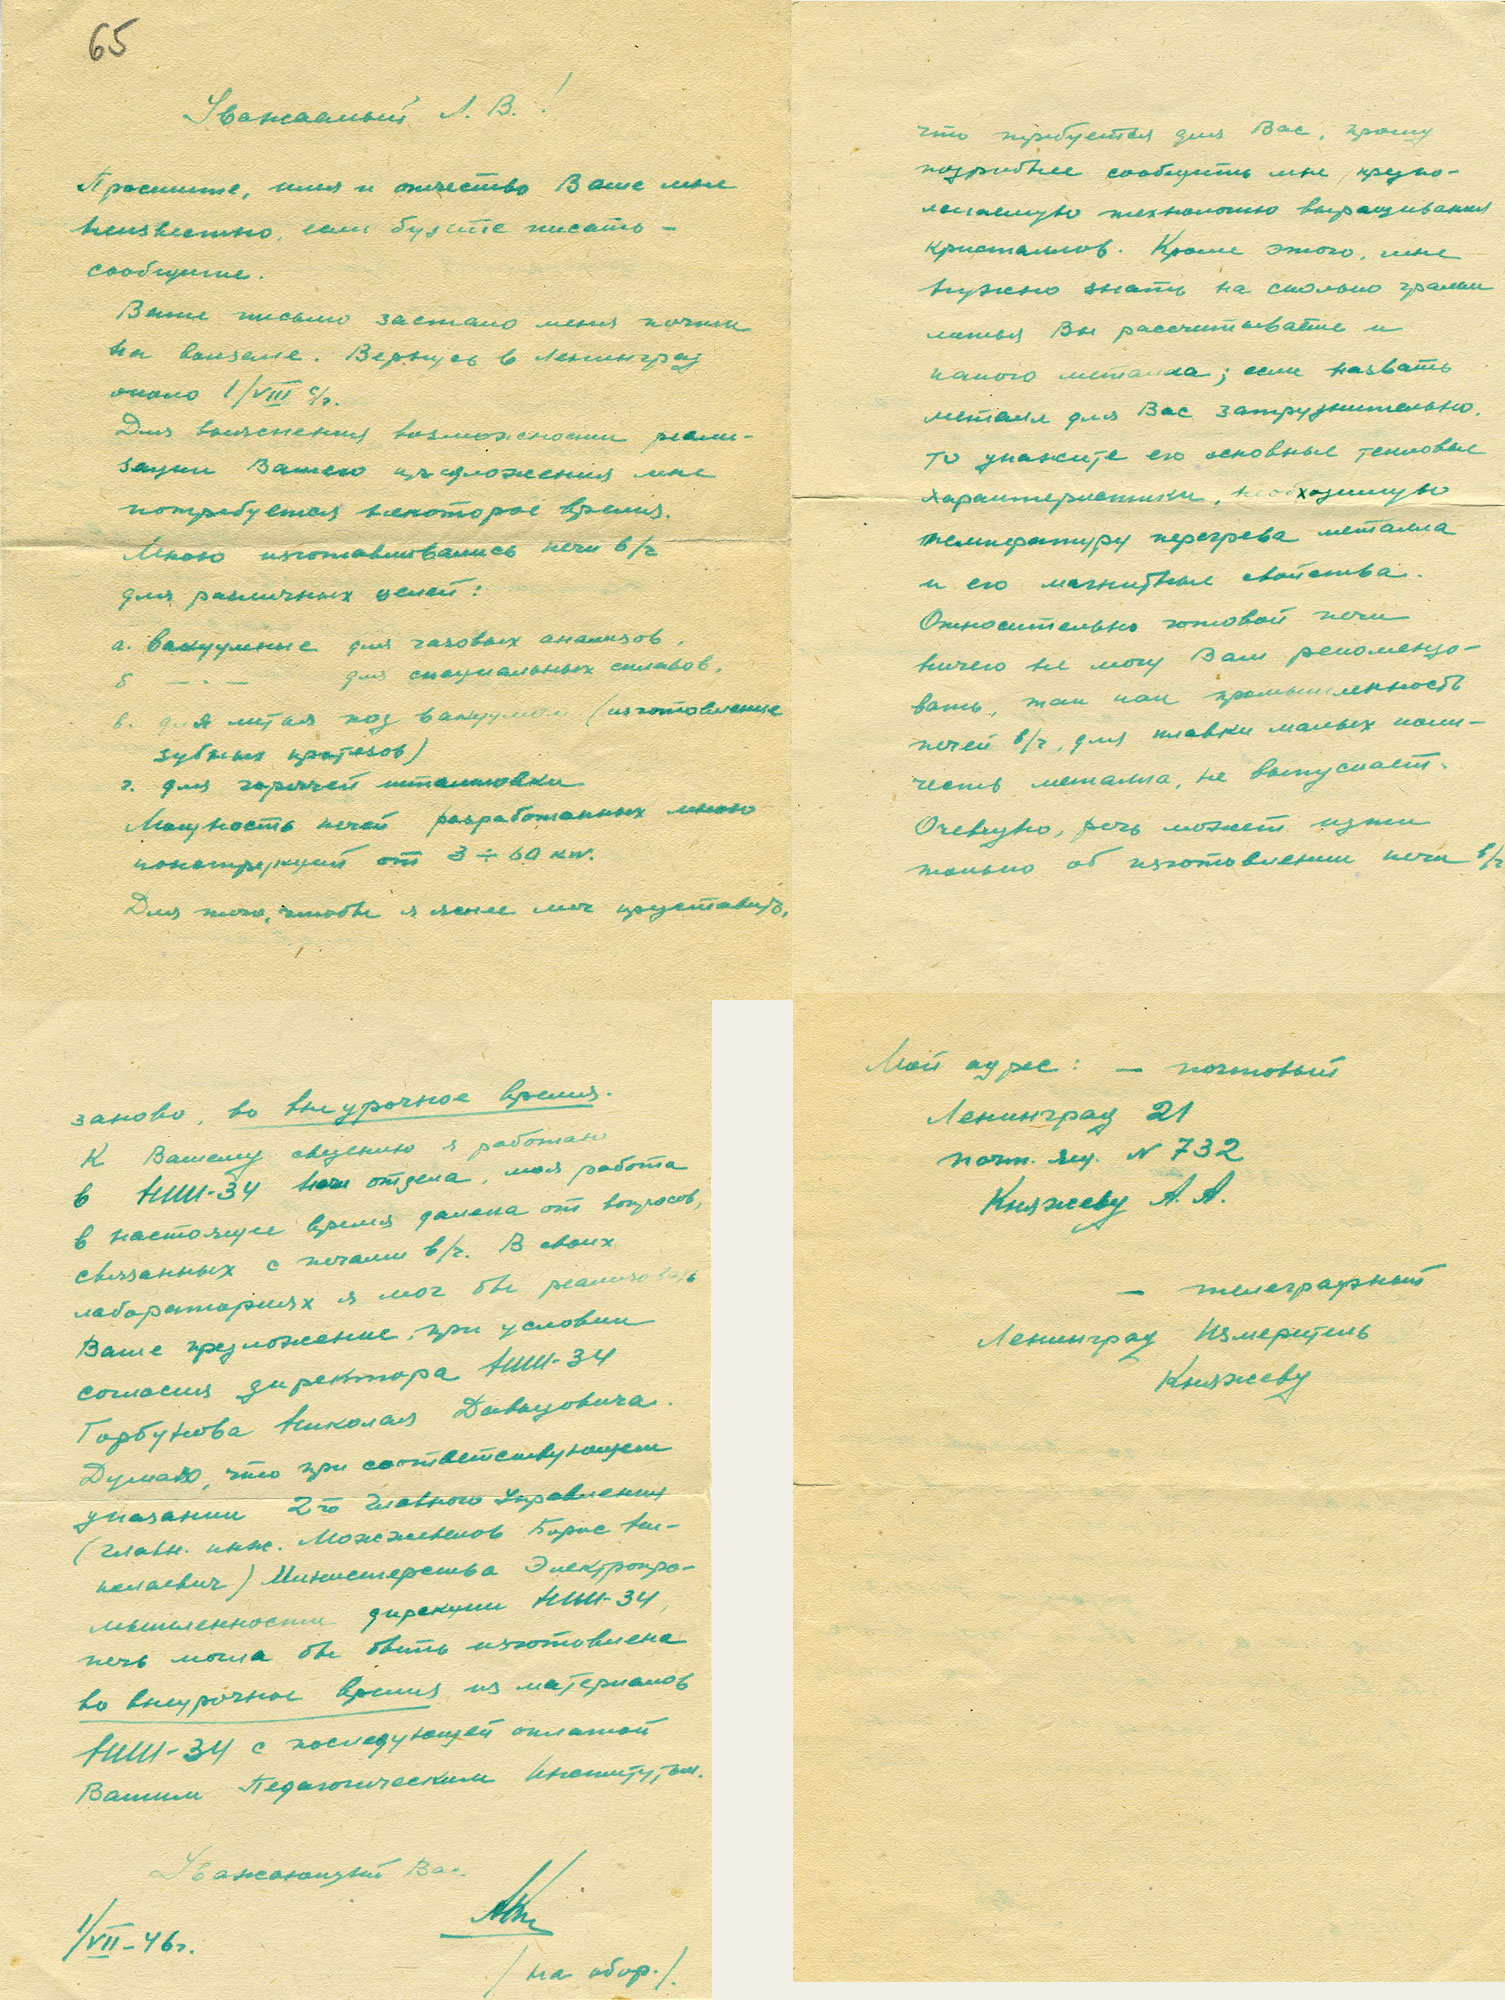 65
Уважаемый Л. В.!
Простите, имя и отчество Ваше мне
неизвестно, если будете писать –
сообщите.
Ваше письмо застало меня почти
на вокзале. Вернусь в Ленинград
около 1/VIII с/г.
Для выяснения возможности реали-
зации Вашего предложения мне
потребуется некоторое время.
Мною изготавливались печи в/ч
для различных целей:
а. вакуумные для газовых анализов,
б – " – для специальных сплавов,
в. для литья под вакуумом (изготовление
зубных протезов)
г. для горячей штамповки
Мощность печей разработанных мною
конструкций от 3 ÷ 60 kw.
Для того, чтобы я яснее мог представить,
что требуется для Вас, прошу
подробнее сообщить мне предпо-
лагаемую технологию выращивания
кристаллов. Кроме этого, мне
нужно знать на сколько грамм
литья Вы рассчитываете и
какого металла; если назвать
металл для Вас затруднительно,
то укажите его основные тепловые
характеристики, необходимую
температуру перегрева металла
и его магнитные свойства.
Относительно готовой печи
ничего не могу Вам рекомендо-
вать, так как промышленность
печей в/ч, для плавки малых коли-
честв металла, не выпускает.
Очевидно, речь может идти
только об изготовлении печи в/ч
заново, во внеурочное время.
К Вашему сведению я работаю
в НИИ-34 нач отдела, моя работа
в настоящее время далека от вопросов,
связанных с печами в/ч. В своих
лабораториях я мог бы реализовать
Ваше предложение, при условии
согласия директора НИИ-34
Горбунова Николая Давыдовича.
Думаю, что при соответствующем
указании 2го Главного Управления
(главн. инж. Можжевелов Борис Ни-
колаевич) Министерства Электропро-
мышленности дирекции НИИ-34,
печь могла бы быть изготовлена
во внеурочное время из материалов
НИИ-34 с последующей оплатой
Вашим Педагогическим Институтом.
Уважающий Вас
1/VII-46г.
(на обор.).
Мой адрес: – почтовый
Ленинград 21
почт. ящ. N 732
Княжеву А. А.
– телеграфный
Ленинград Измеритель
Княжеву